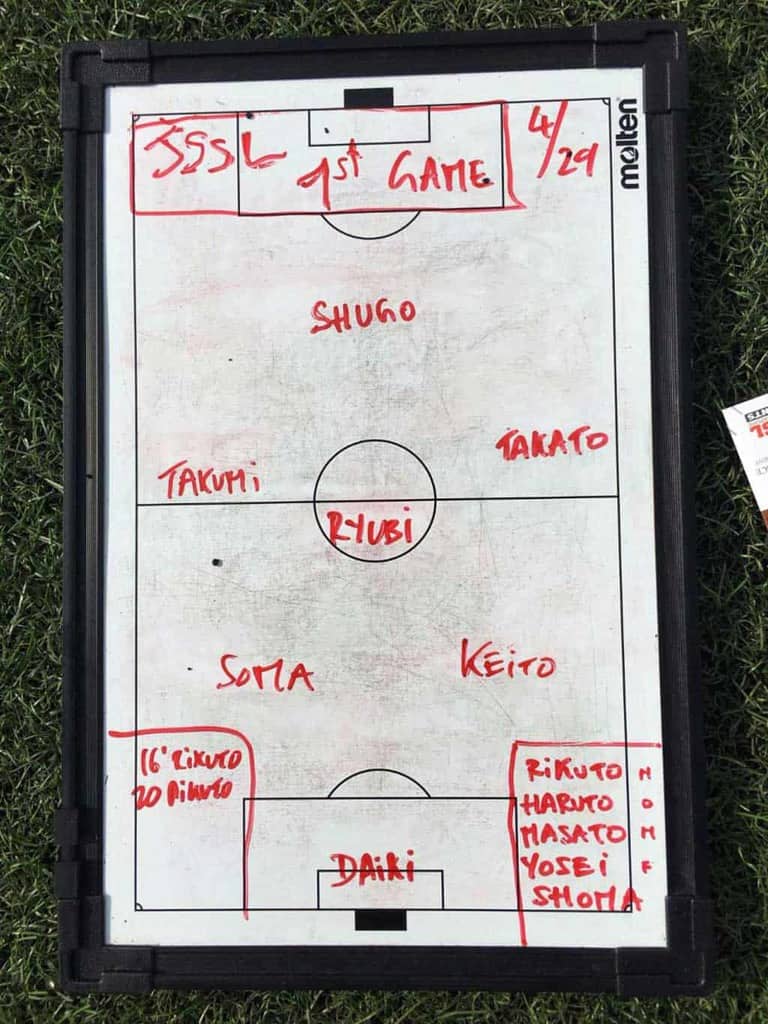 JSSL
1st GAME
4/29
molten
SHUGO
TAKATO
TAKUMi
RYUBi
SOMA
KEiTO
16' RiKUTO
20 RiKUTO
RiKUTO M
HARUTO D
MASATO M
YOSEi F
SHOMA
DAiKi